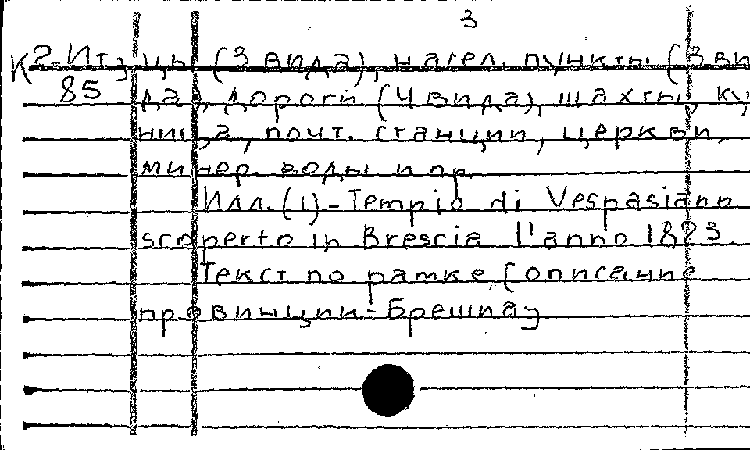 3
К 2-Ит цы (3 вида), насел. пункты (3 ви
85 да), дороги (4 вида), шахты, ку
ница, почт. станции, церкви,
минер. воды и пр.
Илл. (1) - Tempio di Vespasiano
scoperto in Brescia l'anno 1823.
Текст по рамке (описание
провинции Брешиа)